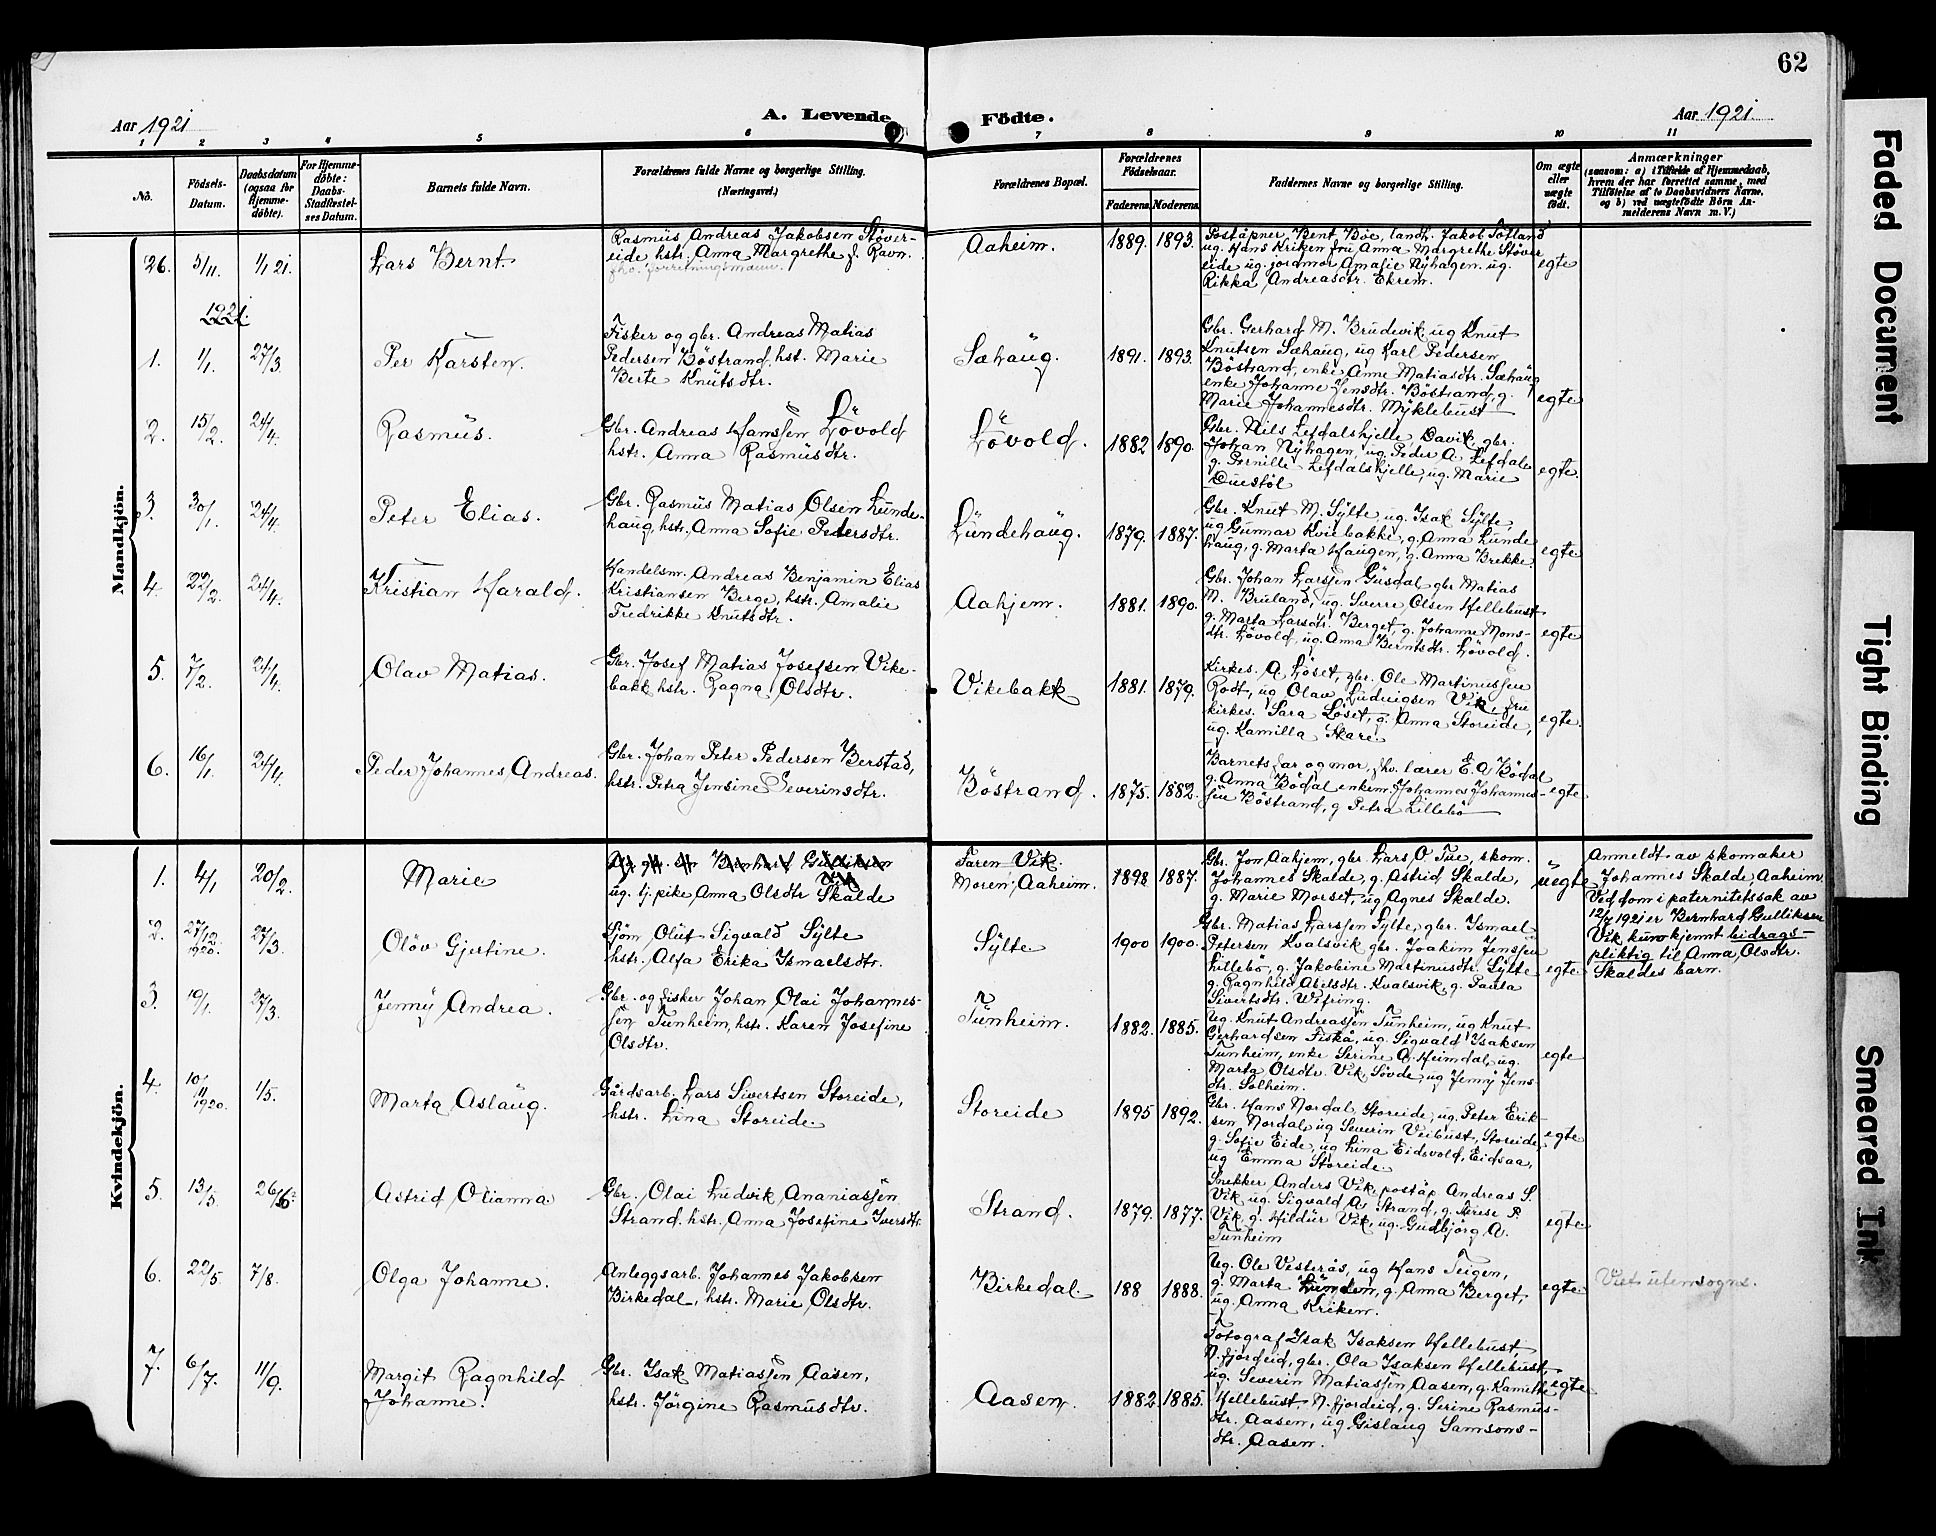 62
Aar 1921
A. Levende
Födte.
Aar 1921.
1 2 3 4 5 6 7 8 9 10 11
No.
Födsels-
Datum.
Daabsdatum
(ogsaa for
Hjemme-
döbte).
For Hjemme-
döbte:
Daabs-
Stadfæstel-
ses Datum.
Barnets fulde Navn.
Forældrenes fulde Navne og borgerlige Stilling.
(Næringsvei.)
Forældrenes Bopæl.
Forældrenes
Födselsaar.
Faderens. Moderens.
Faddernes Navne og borgerlige Stilling.
Om ægte
eller
uægte
födt.
Anmærkninger
(saasom: a) i Tilfælde af Hjemmedaab,
hvem der har forrettet samme, med
Tilföielse af to Daabsvidners Navne,
og b) ved uægtefödte Börn An-
melderens Navn m. V.)
Mandkjön.
26. 5/11. 1/1 21.
Lars Bernt.
Rasmus Andreas Jakobsen Støver-
eide hstr. Anna Margrethe f. Ravn.
fhv. forretningsmann.
Aaheim.
1889. 1893.
Poståpner Bent Bøe, landh. Jakob Sotland
ug. Hans Kriken fru Anna Margrethe Støver
eide ug. jordmor Amalie Nyhagen. ug.
Rikka Andreasdtr. Ekrem.
egte
1921.
1. 1/1. 27/3.
Per Karsten.
Fisker og gbr. Andreas Matias
Pedersen Böstrand, hst. Marie
Berte Knutsdtr.
Sæhaug.
1891. 1893.
Gbr. Gerhard M. Brudevik, ug Knut
Knutsen Sæhaug, ug Karl Pedersen
Böstrand, enke Anne Matiasdtr. Sæhaug
enke Johanne Jensdtr. Böstrand, g.
Marie Johannesdtr. Myklebust
egte
2. 15/2. 24/4.
Rasmus.
Gbr. Andreas Hanssen Lövold
hstr. Anna Rasmusdtr.
Lövold.
1882 1890.
Gbr. Nils Lefdalshjelle, Davik, gbr.
Johan Nyhagen, ug Peder A Lefdal
g. Pernille Lefdalshjelle, ug. Marie
Duestöl
egte.
3. 30/1. 24/4.
Peter Elias.
Gbr. Rasmus Matias Olsen Lunde-
haug, hstr. Anna Sofie Pedersdtr.
Lundehaug.
1879. 1887.
Gbr. Knut M. Sylte, ug. Isak Sylte,
ug Gunnar Kviebakke, g. Anna Lunde
haug, g. Marta Haugen, g. Anna Brekke.
egte
4. 22/2. 24/4.
Kristian Harald.
Handelsm. Andreas Benjamin Elias
Kristiansen Berge, hstr. Amalie
Fredrikke Knutsdtr.
Aahjem.
1881. 1890.
Gbr. Johan Larssen Gusdal gbr Matias
M. Bruland, ug. Sverre Olsen Hellebust
g. Marta Larsdtr. Berget, g. Johanne Mons-
dtr. Lövold, ug. Anna Berntsdtr. Lövold.
egte
5. 7/2. 24/4.
Olav Matias.
Gbr. Josef Matias Josefsen Vike-
bakk hstr. Ragna Olsdtr.
Vikebakk
1881. 1879.
Kirkes. A Löset, gbr. Ole Martinussen
Rodt, ug Olav Ludvigsen Vik, fru
kirkes. Sara Löset, g. Anna Storeide,
ug. Kamilla Skare.
egte.
6. 16/1. 24/4.
Peder Johannes Andreas.
Gbr. Johan Peter Pedersen Berstad,
hstr. Petra Jensine Severinsdtr.
Böstrand.
1875. 1882.
Barnets far og mor, fhv. lærer E. A Bödal
g. Anna Bödal enkem. Johannes Johannes-
sen Böstrand, g Petra Lillebö
egte.
Kvindekjön.
1. 4/1 20/2.
Marie
Bernhard Gulliksen
Vik
ug. tj. pike Anna Olsdtr Skalde
Faren Vik.
Moren, Aaheim.
1898 1887.
Gbr. Jon Aahjem, gbr. Lars O. Tue, skom.
Johannes Skalde, g. Astrid Skalde,
g. Marie Morset, ug Agnes Skalde.
uegte
Anmeldt av skomaker
Johannes Skalde, Aaheim.
Ved dom i paternitetssak av
12/7 1921 er Bernhard Gulliksen
Vik kun kjennt bidrags-
pliktig til Anna Olsdtr.
Skaldes barn.
2. 27/12. 1920. 27/3.
Olöv Gjertine.
Sjöm Olut Sigvald Sylte
hstr. Alfa Erika Ismaelsdtr.
Sylte
1900 1900.
Gbr. Matias Larssen Sylte, gbr. Ismael
Petersen Kvalsvik gbr. Joakim Jenssen
Lillebö, g. Jakobine Martinusdtr. Sylte
g. Ragnhild Abelsdtr. Kvalsvik, g. Paula
Sivertsdtr. Wifring.
egte
3. 19/1. 27/3.
Jenny Andrea.
Gbr. og fisker Johan Olai Johannes-
sen Tunheim, hstr. Karen Josefine
Olsdtr.
Tunheim.
1882. 1885.
Ug. Knut Andreassen Tunheim, ug Knut
Gerhardsen Fiskå, ug. Sigvald Isaksen
Tunheim, enke Serine A. Heimdal, ug.
Marta Olsdtr. Vik Sövde, ug Jenny Jens-
dtr. Solheim.
egte
4. 10/11 1920. 1/5.
Marta Aslaug.
Gårdsarb. Lars Sivertsen Storeide,
hstr. Lina Storeide.
Storeide
1895 1892.
Gbr. Hans Nordal, Storeide, ug. Peter Erik-
sen Nordal, ug Severin Veibust, Storeide,
g. Sofie Eide, ug Lina Eidsvold, Eidsaa,
ug Emma Storeide.
egte
5. 13/5. 26/6
Astrid Olianna
Gbr. Olai Ludvik Ananiassen
Strand. hstr. Anna Josefine Iversdtr.
Strand.
1879. 1877.
Snekker Anders Vik, poståp. Andreas S.
Vik ug. Sigvald A. Strand, g. Terese P.
Vik, g. Hildur Vik, ug. Gudbjörg A.
Tunheim
egte
6. 22/5 7/8.
Olga Johanne.
Anleggsarb. Johannes Jakobsen
Birkedal, hstr. Marie Olsdtr.
Birkedal
188 1888.
Ug. Ole Vesterås, ug Hans Teigen,
g. Marta Lunden, g. Anna Berget,
ug. Anna Kriken.
egte.
Viet utensogns.
7. 6/7. 11/9.
Margit Ragnhild
Johanne.
Gbr. Isak Matiassen Aasen,
hstr. Jörgine Rasmusdtr.
Aasen.
1882 1885.
Fotograf Isak Isaksen Hellebust,
N.fjordeid, gbr. Ola Isaksen Hellebust,
ug. Severin Matiassen Aasen, g. Kamilla
Hellebust N.fjordeid, g. Serine Rasmus-
dtr. Aasen, ug Gislaug Samsons-
dtr. Aasen.
egte
Faded Document
Tight Binding
Smeared Ink